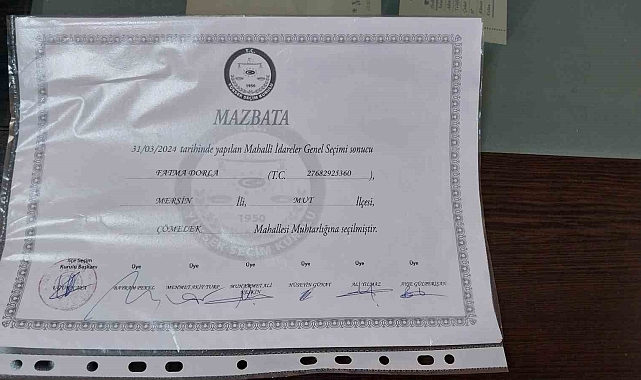 T.C.
1950
YÜKSEK SEÇİM KURULU
MAZBATA
31/03/2024 tarihinde yapılan Mahalli İdareler Genel Seçimi sonucu
FATMA DORLA (T.C. 27682925360 ),
MERSİN İli, MUT İlçesi,
ÇÖMELEK Mahallesi Muhtarlığına seçilmiştir.
1950
YÜKSEK SEÇİM KURULU
İlçe Seçim
Kurulu Başkanı Üye Üye Üye Üye Üye Üye
BAYRAM PEKEL MEHMET AKİF TURP MUHAMMET ALİ HÜSEYİN GÜNAY ALİ YILMAZ AYŞE